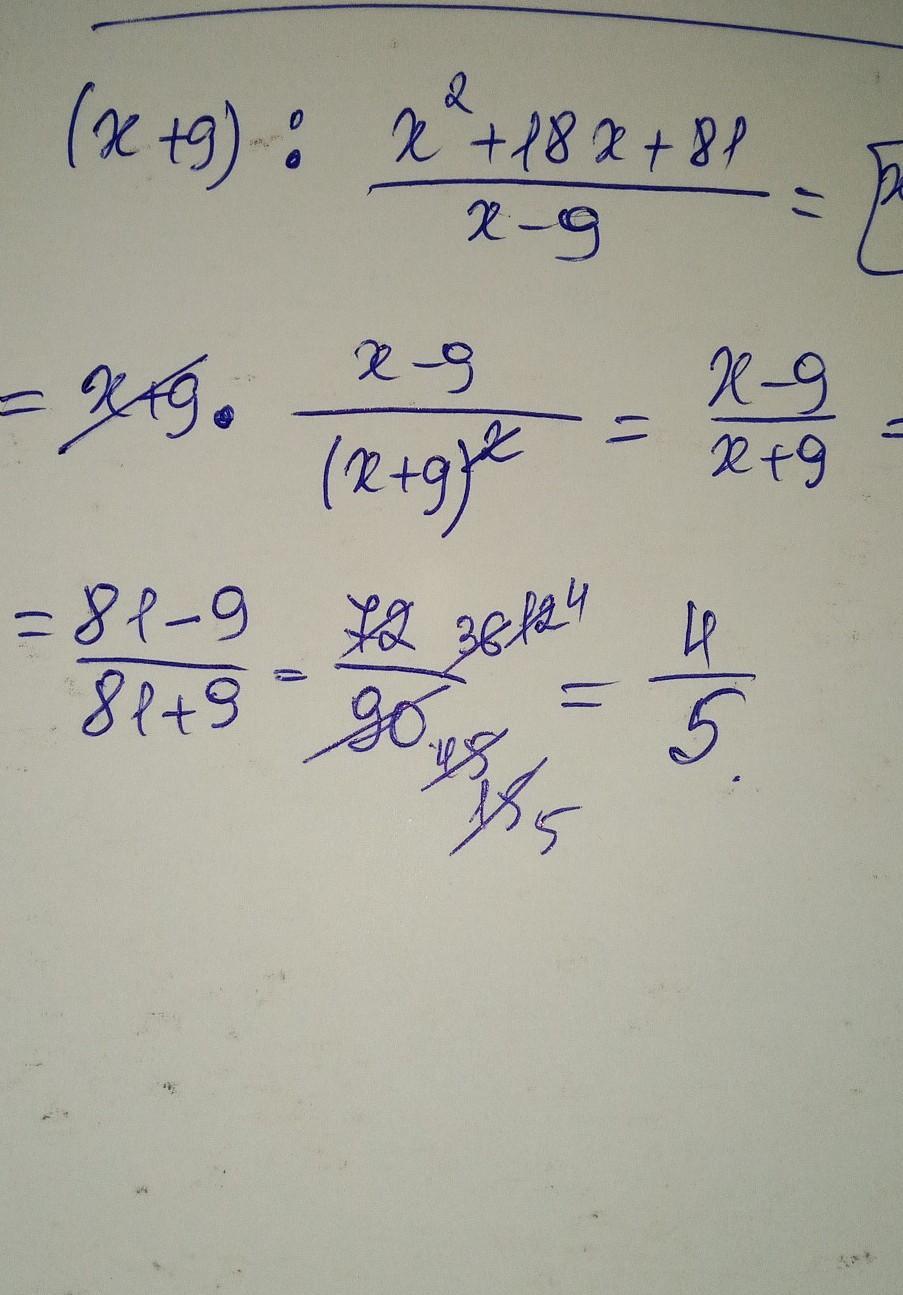 (x+9) : x²+18x+81 / x-9 = [x
= x+9 · x-9 / (x+9)² = x-9 / x+9 =
= 81-9 / 81+9 = 72 36 12 4 / 90 45 15 5 = 4 / 5 .